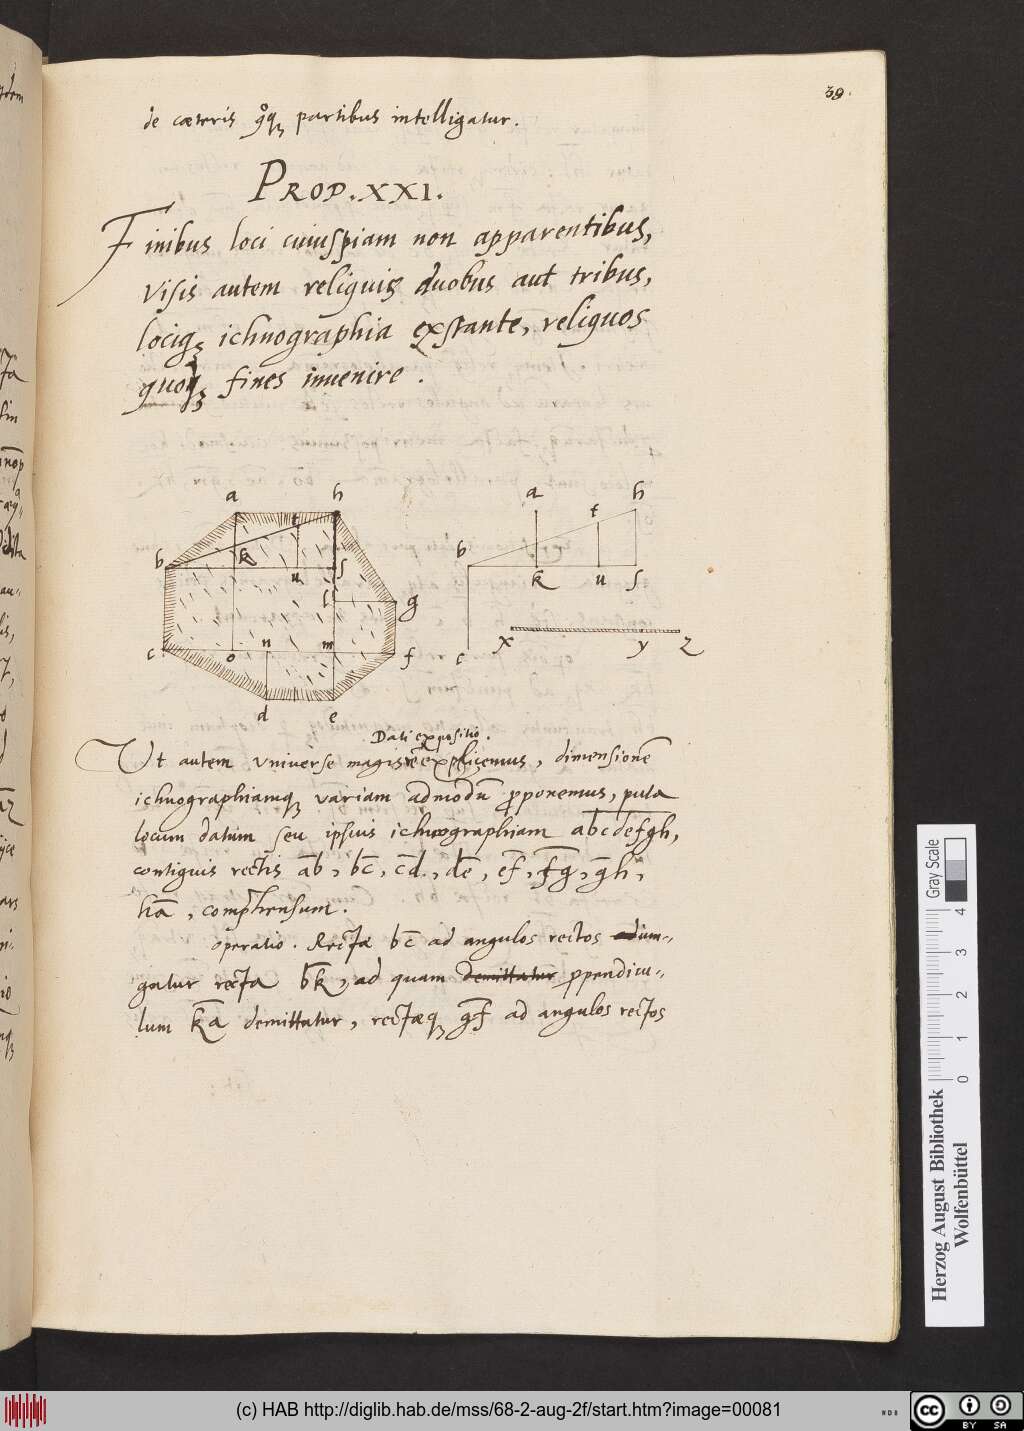 39.
de cæteris qꝫ partibus intelligatur.
PROP. XXI.
Finibus loci cuiuspiam non apparentibus,
visis autem reliquis duobus aut tribus,
lociqꝫ ichnographia exstante, reliquos
quoqꝫ fines inuenire.
a h a h
t t
b k u s b k u s
l g
c o n m f c x y z
d e
Dati expositio.
Ut autem universe magis explicemus, dimensionē
ichnographiamqꝫ variam admodū ꝓponemus, puta
locum datum seu ipsius ichnographiam abcdefgh,
contiguis rectis ab, bc, cd, de, ef, fg, gh,
ha, comp̄hensum.
operatio. Rectæ bc ad angulos rectos adiun-
gatur recta bk, ad quam demittatur ꝑpendicu-
lum ka demittatur, rectæqꝫ gf ad angulos rectos
Gray Scale
0 1 2 3 4
Herzog August Bibliothek
Wolfenbüttel
(c) HAB http://diglib.hab.de/mss/68-2-aug-2f/start.htm?image=00081
WDB
cc BY SA